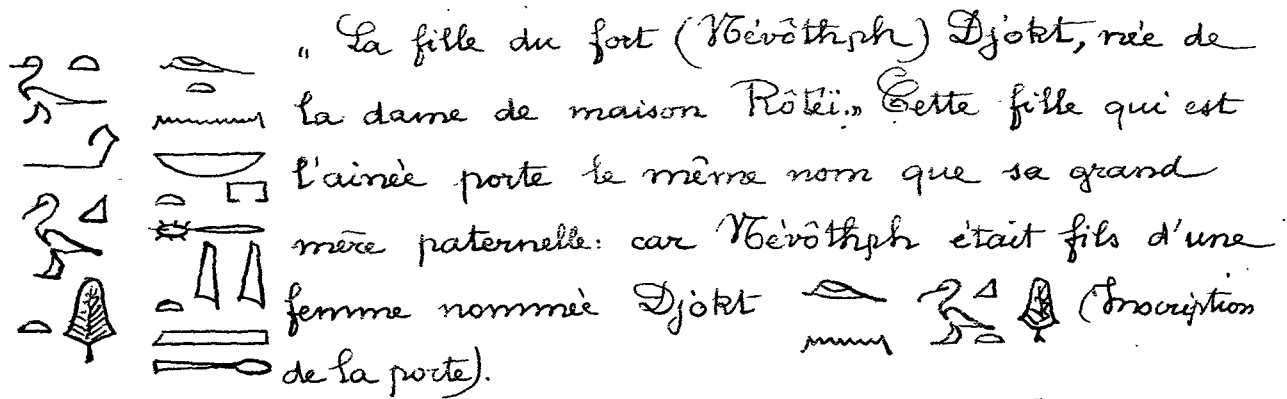 „ La fille du fort (Névôthph) Djôkt, née de
la dame de maison Rôtëï.„ Cette fille qui est
l'ainée porte le même nom que sa grand
mère paternelle: car Névôthph était fils d'une
femme nommée Djôkt (Inscription
de la porte).